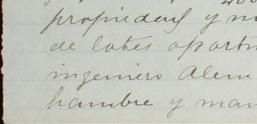 propiedad y m
de lotes oport
ingeniero Alem
hambre y man